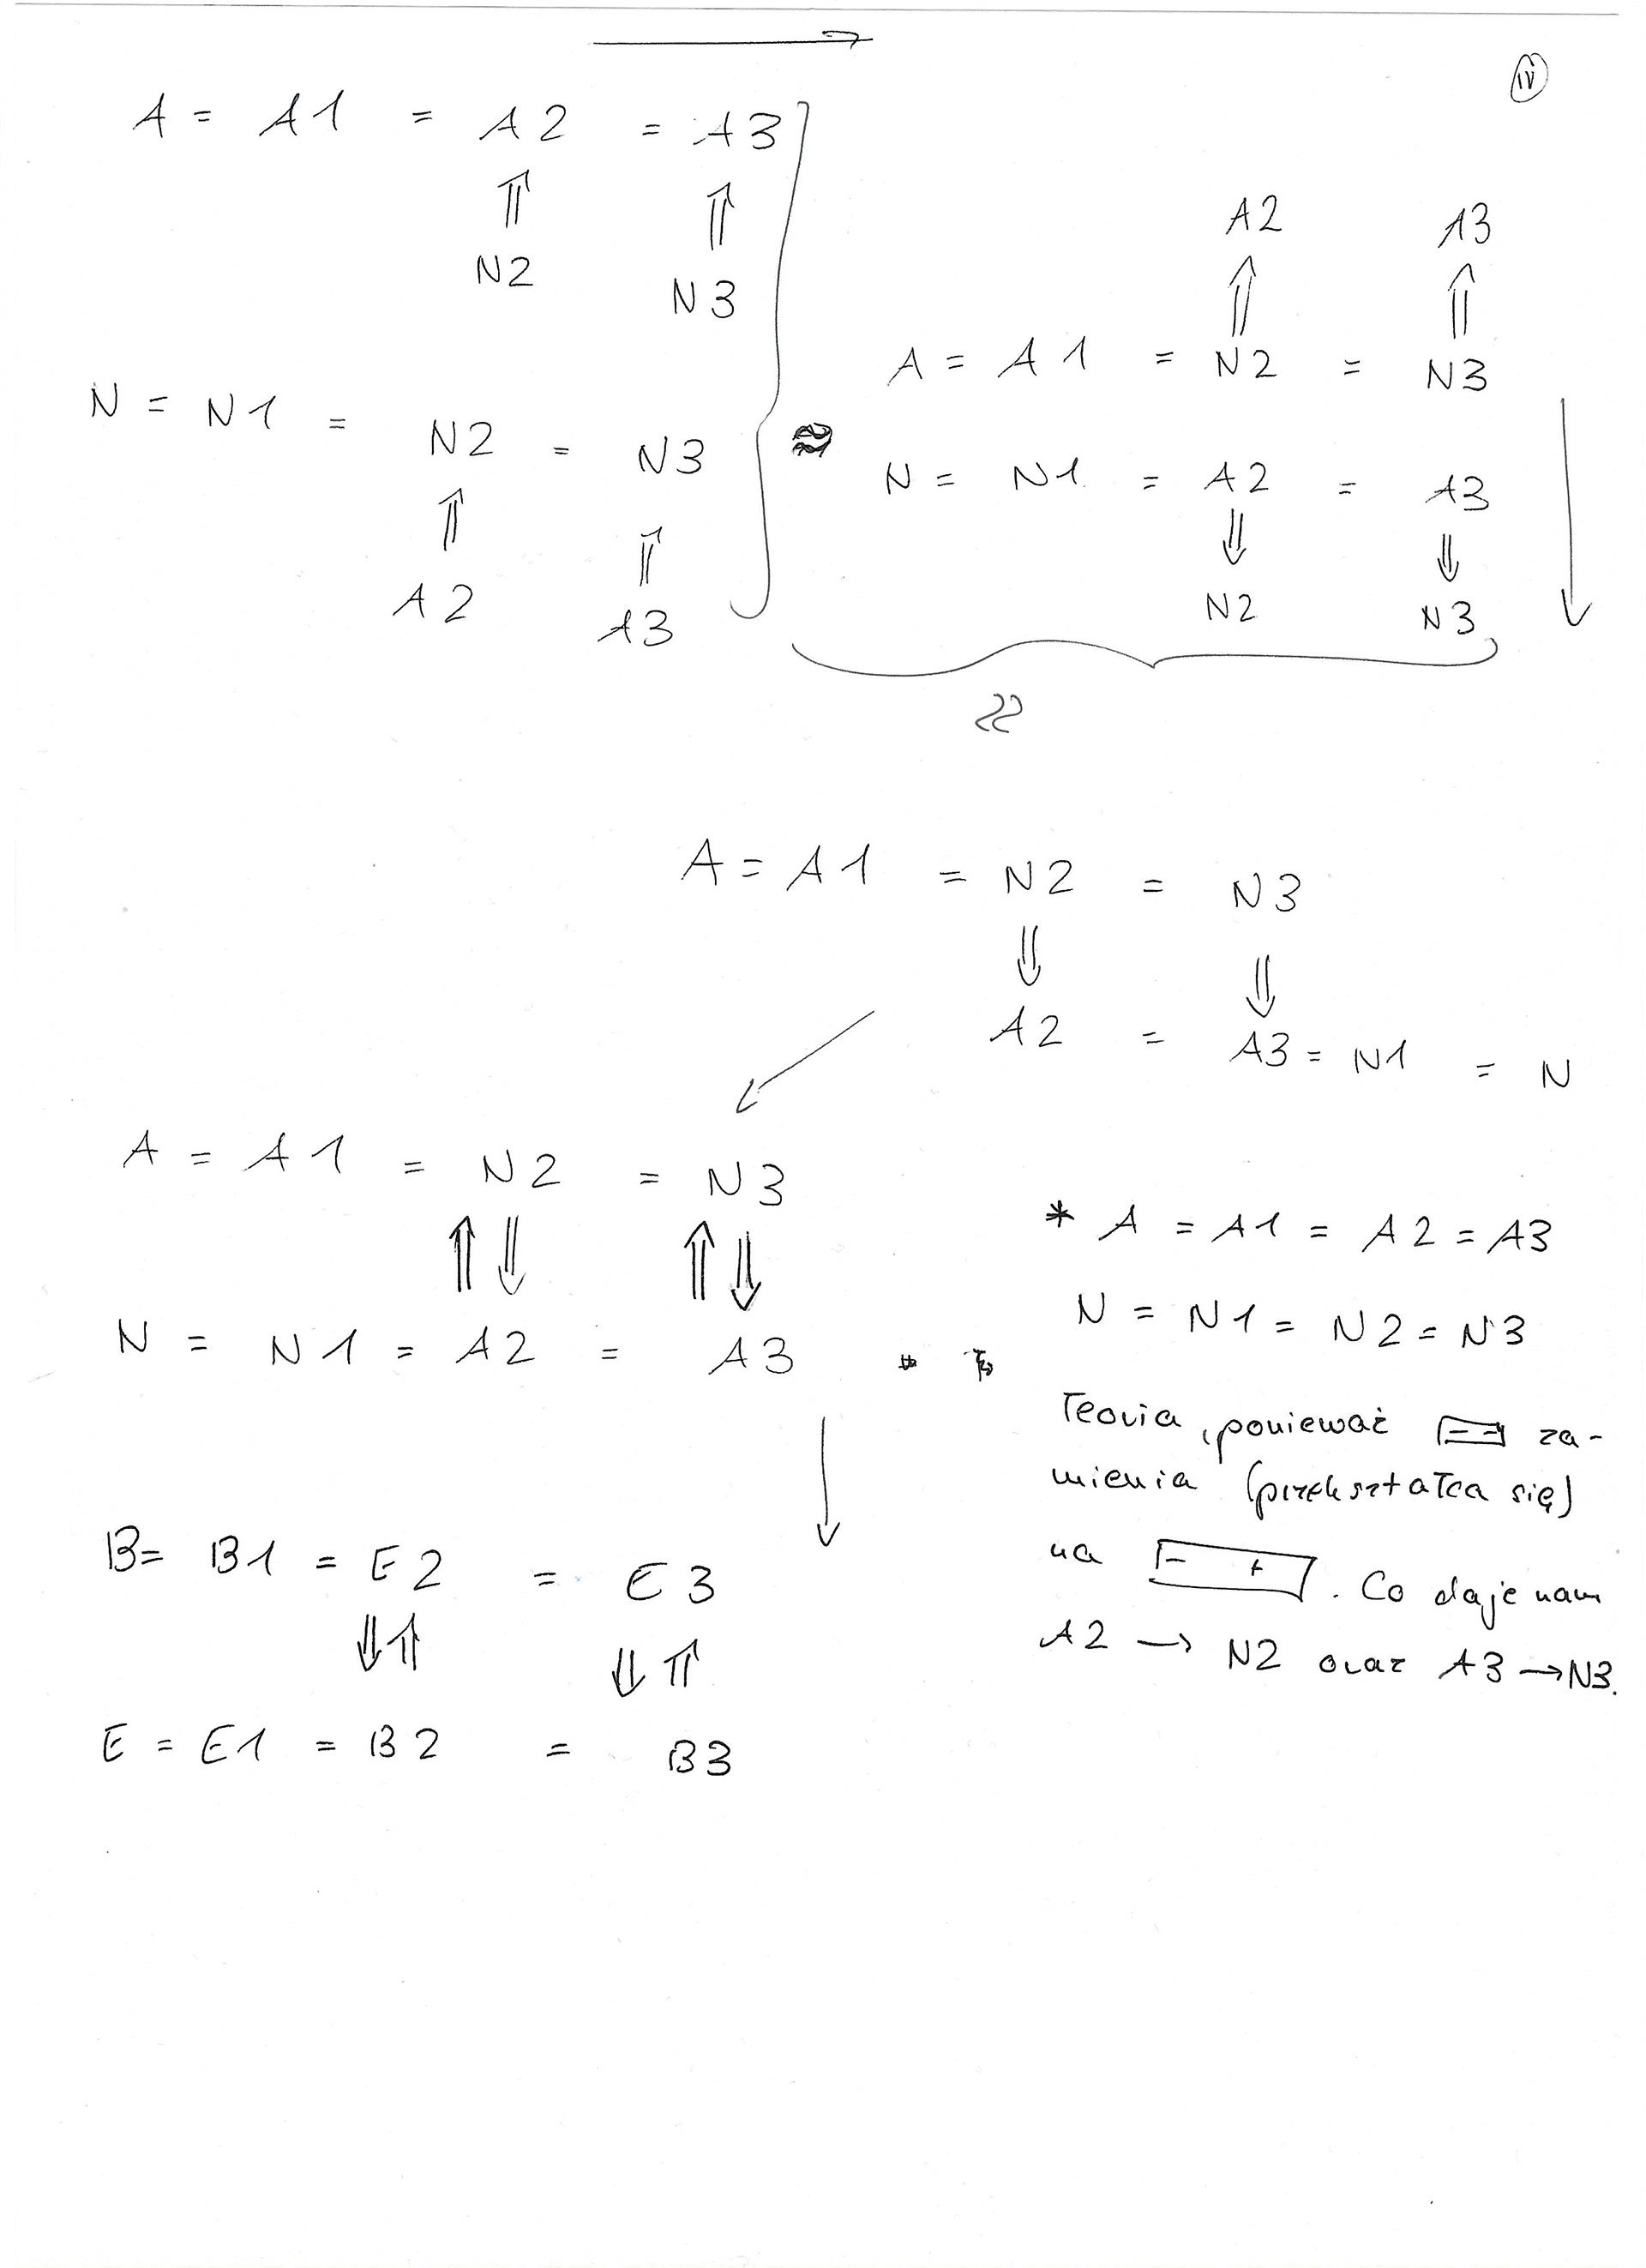 IV
A = A1 = A2 = A3
⇑ ⇑
N2 N3
N = N1 = N2 = N3
⇑ ⇑
A2 A3
≈
A2 A3
⇑ ⇑
A = A1 = N2 = N3
N = N1 = A2 = A3
⇓ ⇓
N2 N3
≈
A = A1 = N2 = N3
⇓ ⇓
A2 = A3 = N1 = N
A = A1 = N2 = N3
⇑⇓ ⇑⇓
N = N1 = A2 = A3
B = B1 = E2 = E3
⇓⇑ ⇓⇑
E = E1 = B2 = B3
* A = A1 = A2 = A3
N = N1 = N2 = N3
Teoria, ponieważ [- -] za-
mienia (przekształca się)
na [- +]. Co daje nam
A2 → N2 oraz A3 → N3.